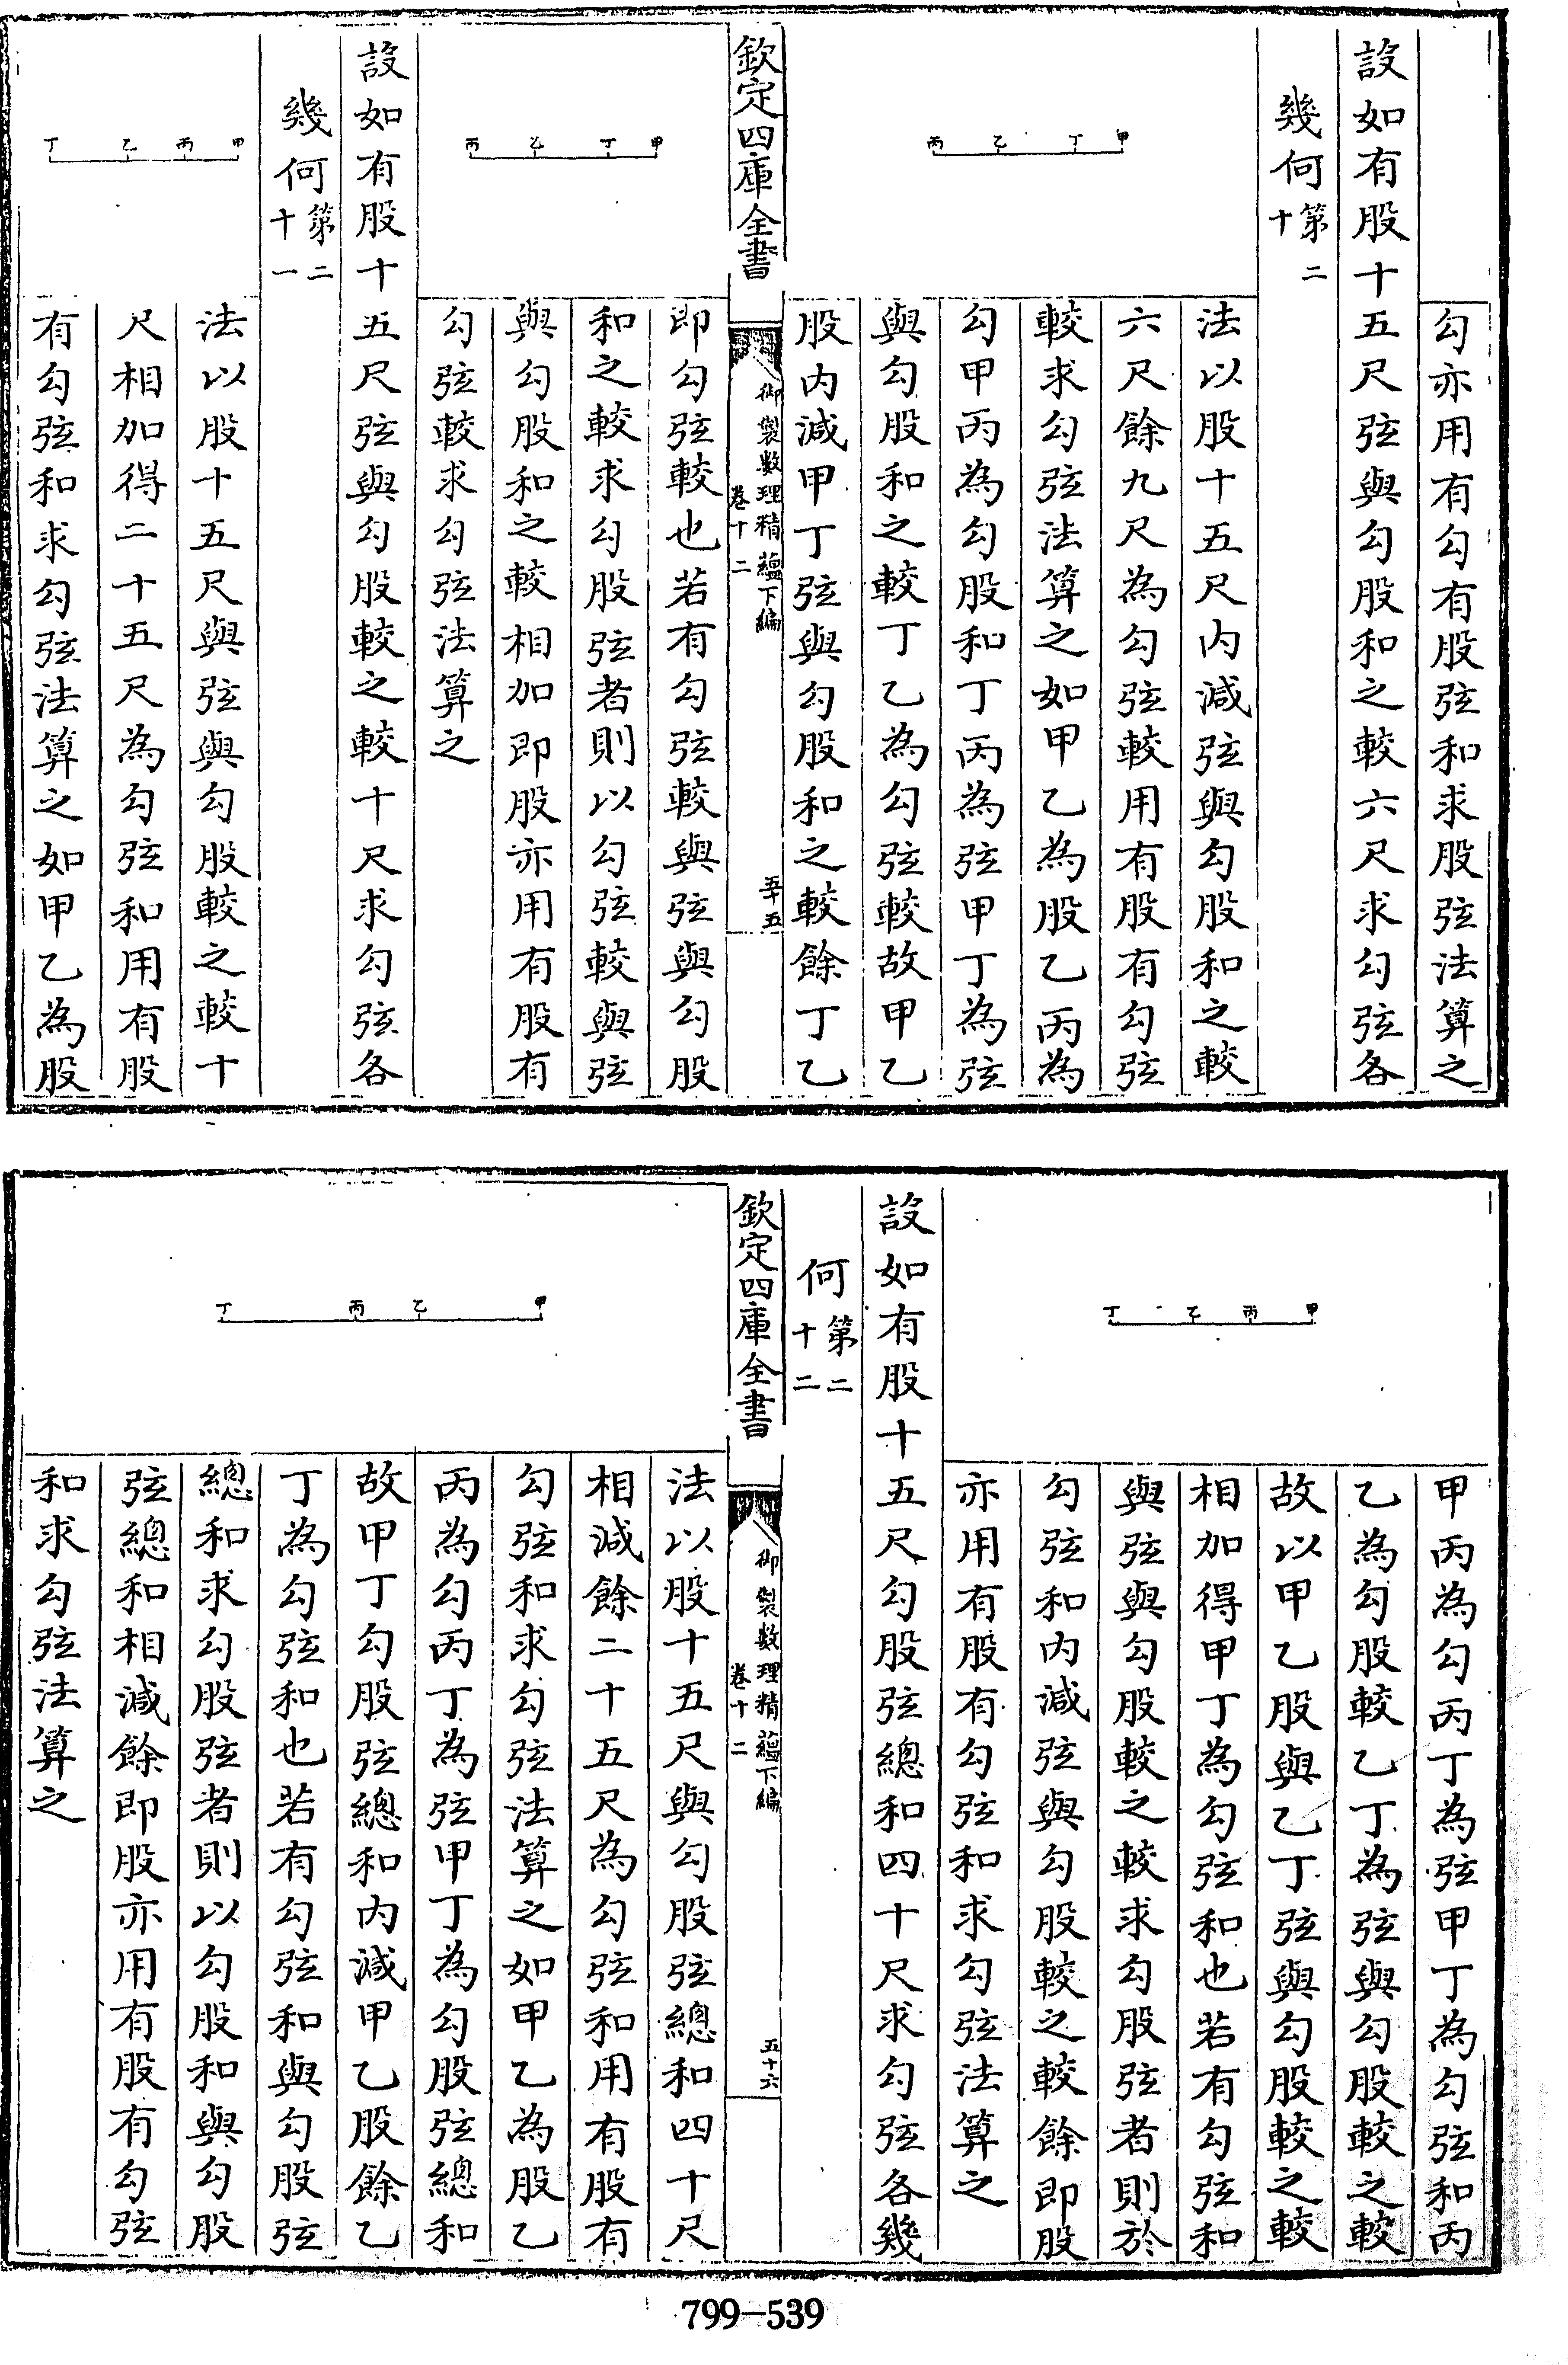 勾亦用有勾有股弦和求股弦法算之
設如有股十五尺弦與勾股和之較六尺求勾弦各
幾何第二十
法以股十五尺內減弦與勾股和之較
六尺餘九尺為勾弦較用有股有勾弦
較求勾弦法算之如甲乙為股乙丙為
勾甲丙為勾股和丁丙為弦甲丁為弦
與勾股和之較丁乙為勾弦較故甲乙
股內減甲丁弦與勾股和之較餘丁乙
甲丁乙丙
欽定四庫全書
御製數理精蘊下編
卷十二
五十五
即勾弦較也若有勾弦較與弦與勾股
和之較求勾股弦者則以勾弦較與弦
與勾股和之較相加即股亦用有股有
勾弦較求勾弦法算之
甲丁乙丙
設如有股十五尺弦與勾股較之較十尺求勾弦各
幾何第二十一
法以股十五尺與弦與勾股較之較十
尺相加得二十五尺為勾弦和用有股
有勾弦和求勾弦法算之如甲乙為股
甲丙乙丁
甲丙為勾丙丁為弦甲丁為勾弦和丙
乙為勾股較乙丁為弦與勾股較之較
故以甲乙股與乙丁弦與勾股較之較
相加得甲丁為勾弦和也若有勾弦和
與弦與勾股較之較求勾股弦者則於
勾弦和內減弦與勾股較之較餘即股
亦用有股有勾弦和求勾弦法算之
甲丙乙丁
設如有股十五尺勾股弦總和四十尺求勾弦各幾
何第二十二
欽定四庫全書
御製數理精蘊下編
卷十二
五十六
法以股十五尺與勾股弦總和四十尺
相減餘二十五尺為勾弦和用有股有
勾弦和求勾弦法算之如甲乙為股乙
丙為勾丙丁為弦甲丁為勾股弦總和
故甲丁勾股弦總和內減甲乙股餘乙
丁為勾弦和也若有勾弦和與勾股弦
總和求勾股弦者則以勾股和與勾股
弦總和相減餘即股亦用有股有勾弦
和求勾弦法算之
甲乙丙丁
799-539